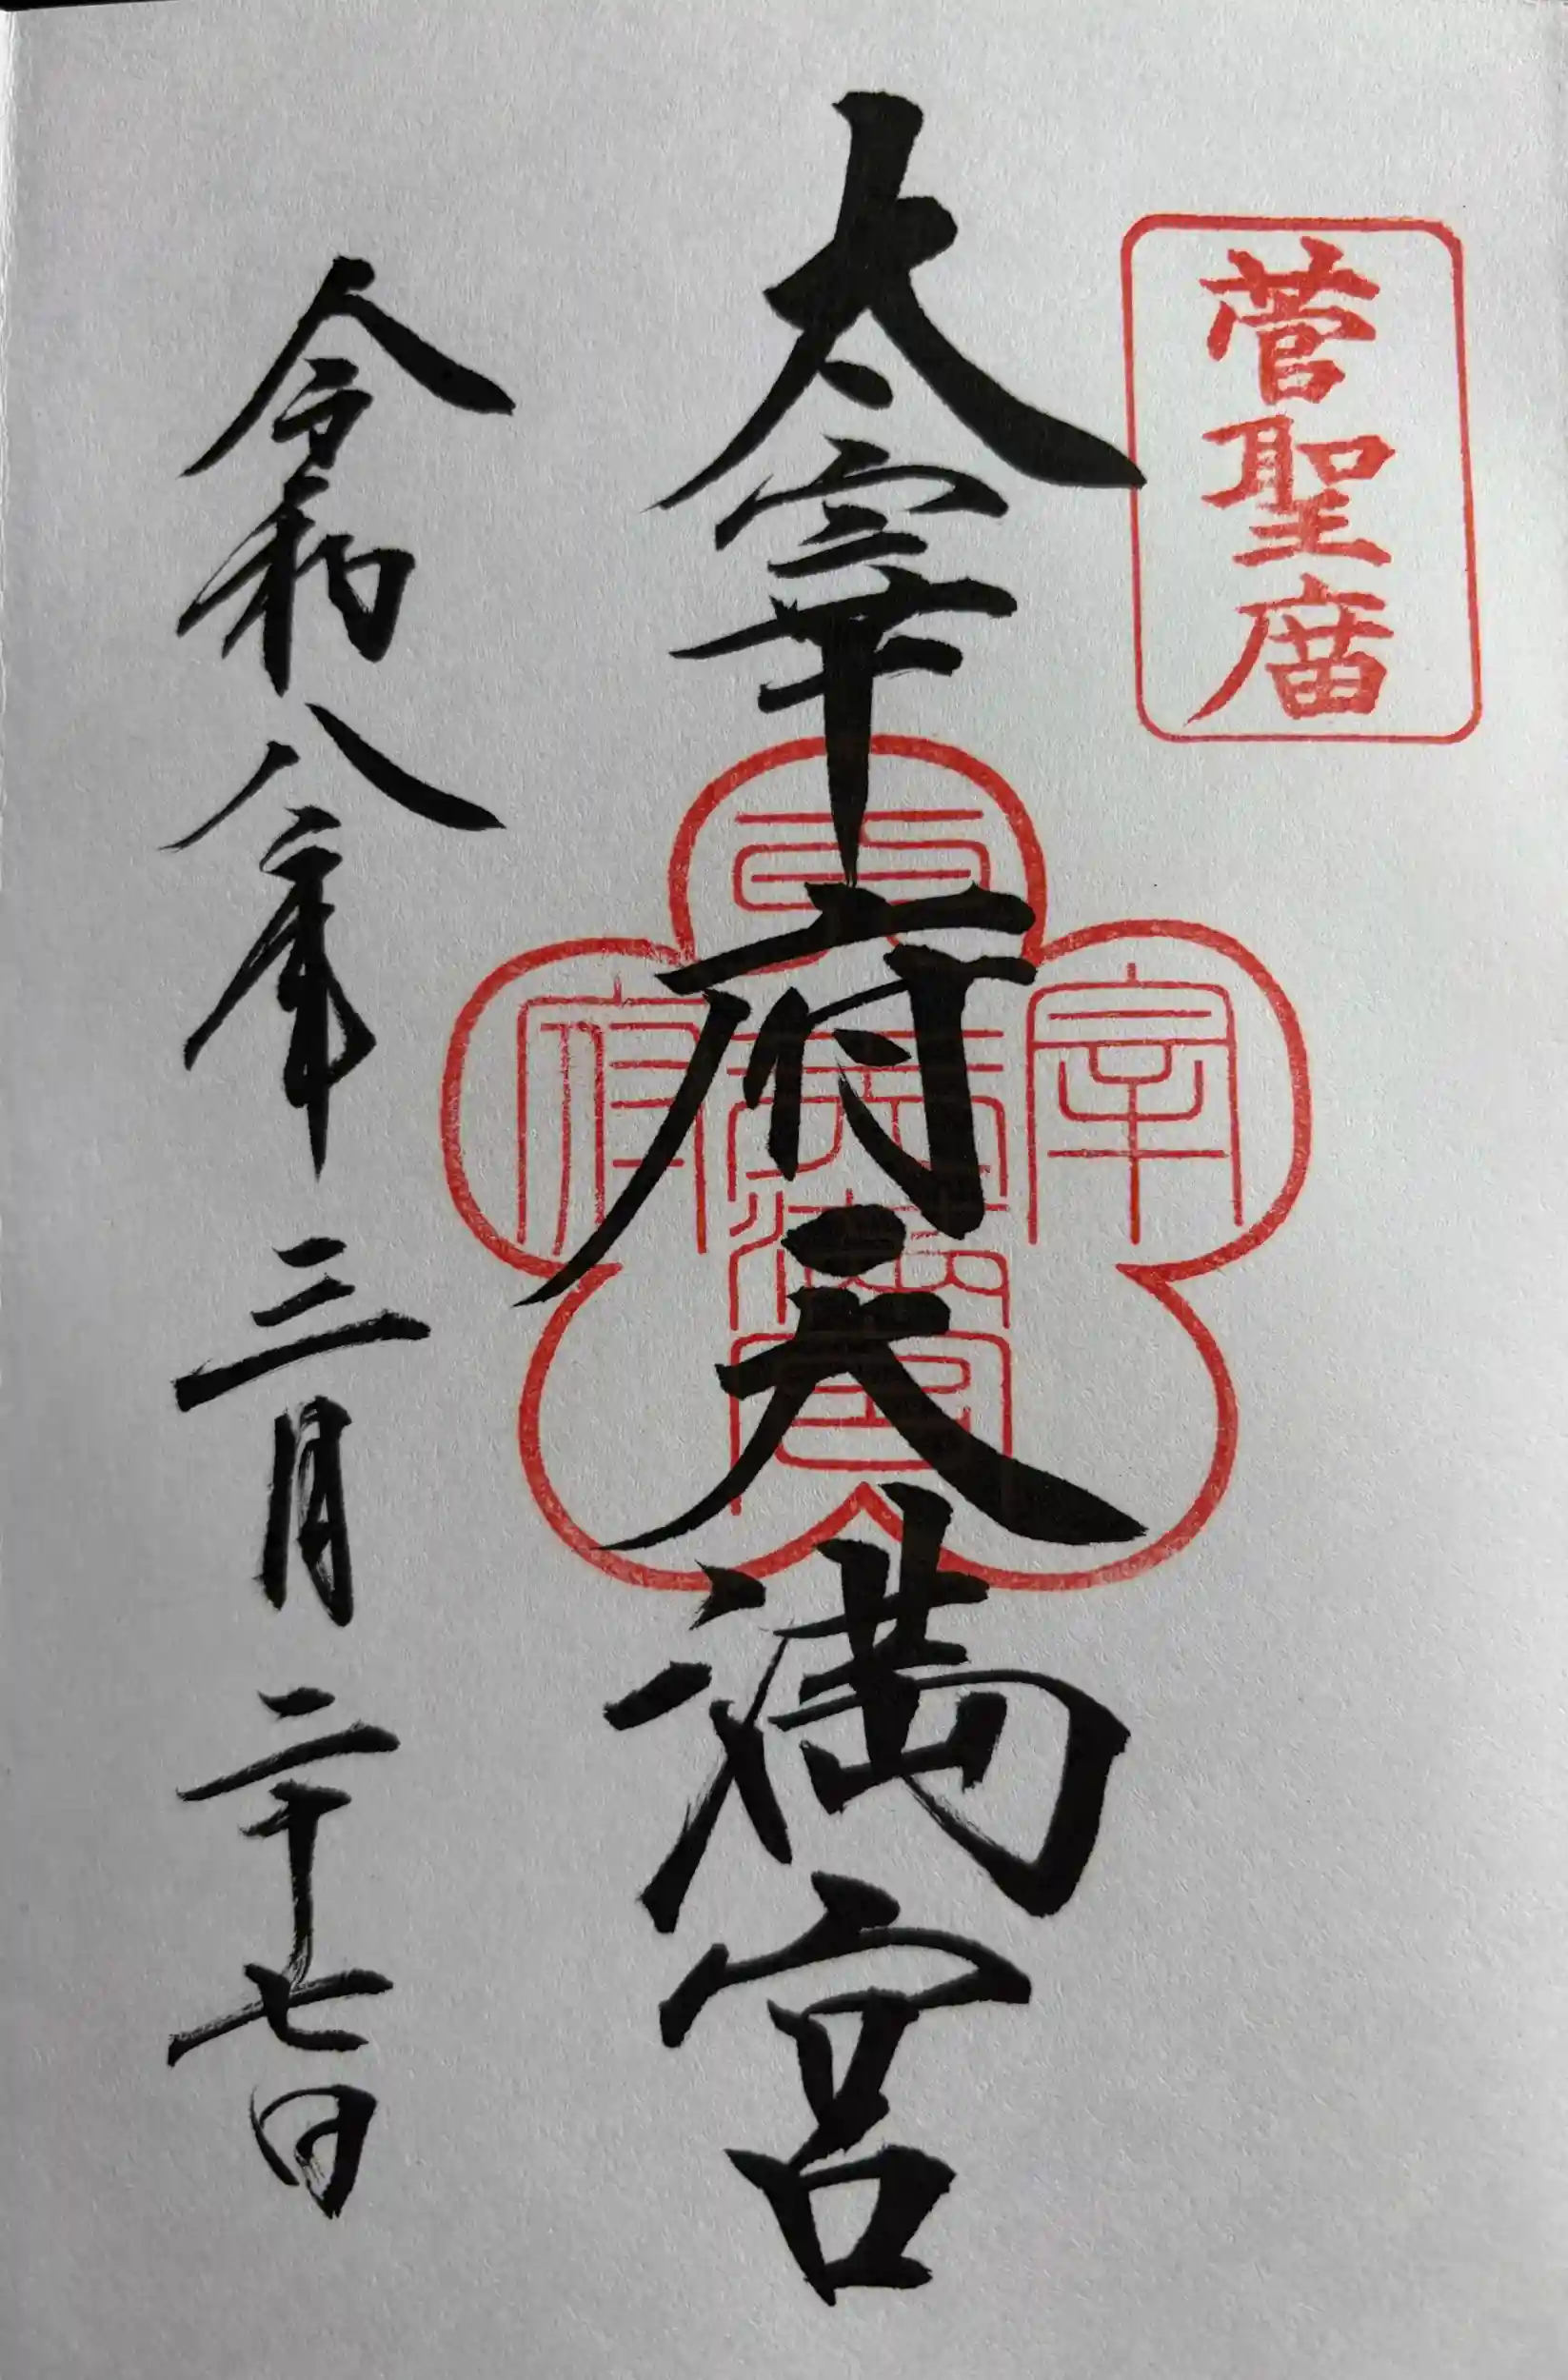 菅聖廟
太宰府天満宮
太
宰
府
天満宮
令和八年三月二十七日